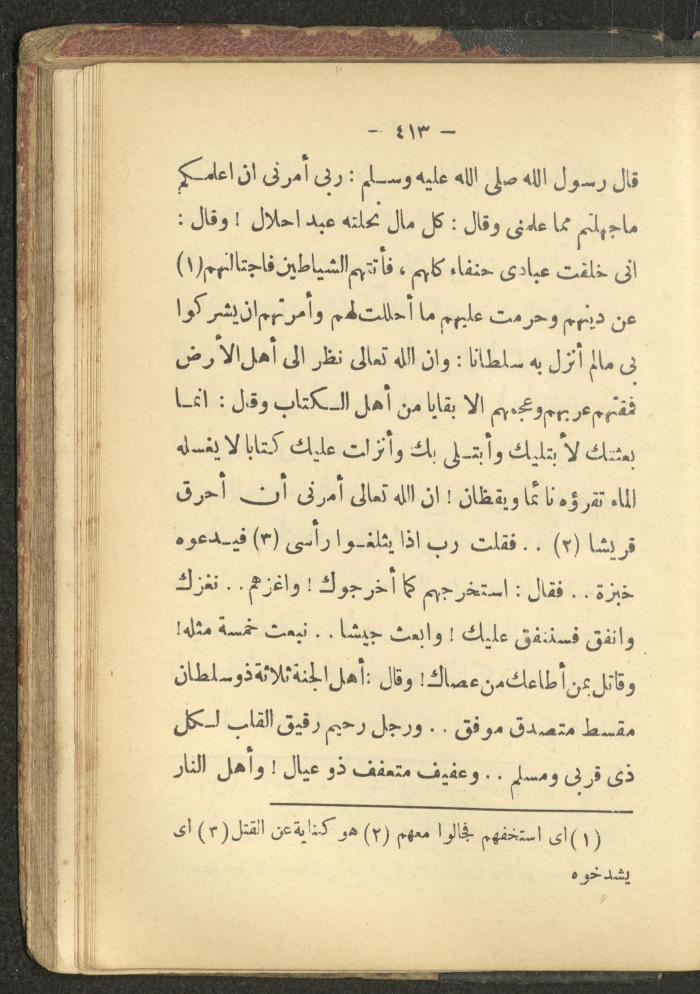 — ٤١٣ —
قال رسول الله صلى الله عليه وسلم : ربى أمرنى ان اعلمكم
ماجهلتم مما علمنى وقال : كل مال نحلته عبد احلال ! وقال :
انى خلقت عبادى حنفاء كلهم ، فأتتهم الشياطين فاجتالتهم (١)
عن دينهم وحرمت عليهم ما أحللت لهم وأمرتهم ان يشركوا
بى مالم أنزل به سلطانا : وان الله تعالى نظر الى أهل الأرض
فمقتهم عربهم وعجمهم الا بقايا من أهل الكتاب وقال : انما
بعثتك لأبتليك وأبتلى بك وأنزلت عليك كتابا لا يغسله
الماء تقرؤه نائما ويقظان ! ان الله تعالى أمرنى أن أحرق
قريشا (٢) . . فقلت رب اذا يثلغوا رأسى (٣) فيدعوه
خبزة . . فقال : استخرجهم كما أخرجوك ! واغزهم . . نغزك
وانفق فسننفق عليك ! وابعث جيشا . . نبعث خمسة مثله !
وقاتل بمن أطاعك من عصاك ! وقال : أهل الجنة ثلاثة ذو سلطان
مقسط متصدق موفق . . ورجل رحيم رقيق القلب لكل
ذى قربى ومسلم . . وعفيف متعفف ذو عيال ! وأهل النار
(١) اى استخفهم فجالوا معهم (٢) هو كناية عن القتل (٣) اى
يشدخوه